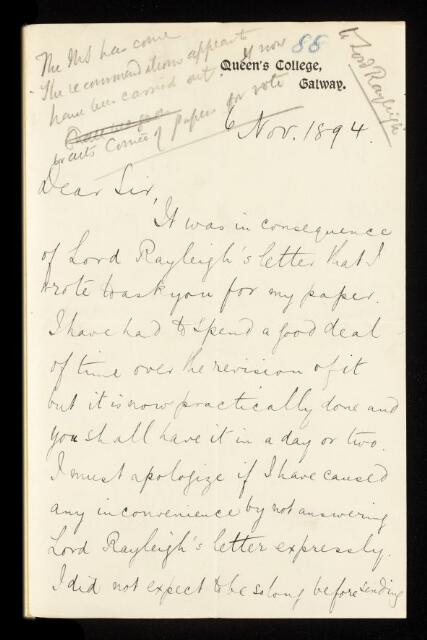 The MS has come
The recommendations appear to
have been carried out if now
Shall we go on
Comee of Papers for vote
88
to Lord Rayleigh
Queen's College,
Galway.
6 Nov. 1894.
Dear Sir,
It was in consequence
of Lord Rayleigh's letter that I
wrote to ask you for my paper.
I have had to spend a good deal
of time over the revision of it
but it is now practically done and
you shall have it in a day or two.
I must apologize if I have caused
any inconvenience by not answering
Lord Rayleigh's letter expressly.
I did not expect to be so long before sending